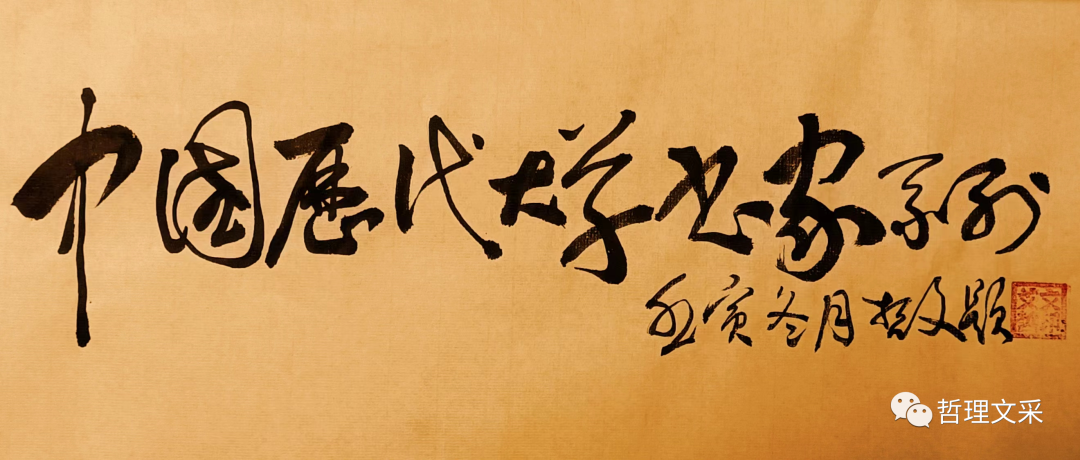 中国历代大学书家系列
壬寅冬月敬题
哲理文采